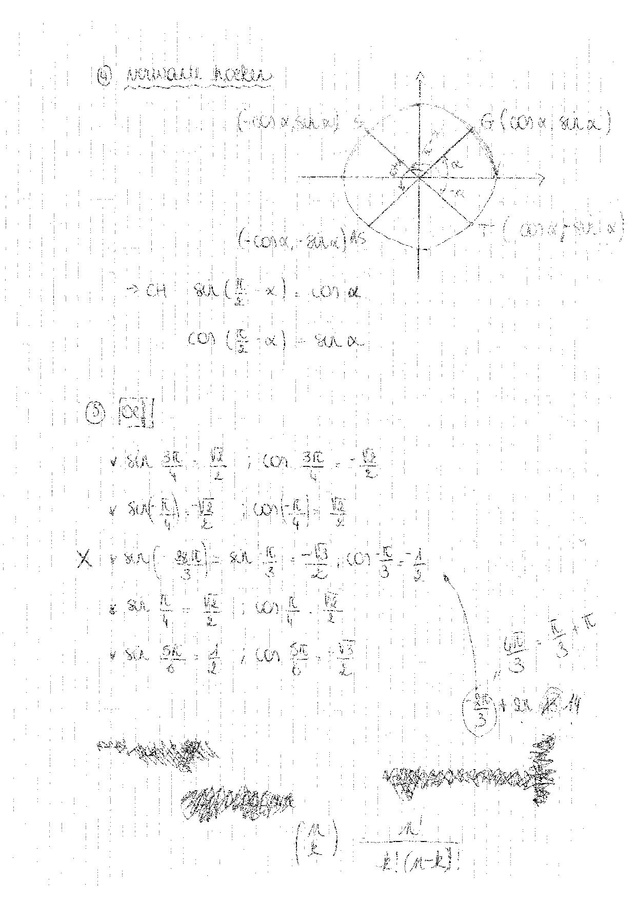 ④ verwante hoeken
(-cos α, sin α) S
G (cos α, sin α)
α
-α
(-cos α, -sin α) AS
T (cos α, -sin α)
→ CH sin (π/2 - α) = cos α
cos (π/2 - α) = sin α
⑤
v sin 3π/4 = √2/2 ; cos 3π/4 = -√2/2
v sin(-π/4) = -√2/2 ; cos(-π/4) = √2/2
X v sin(- π/3) = sin π/3 = -√3/2 ; cos -π/3 = -1/2
v sin π/4 = √2/2 ; cos π/4 = √2/2
v sin 5π/6 = 1/2 ; cos 5π/6 = -√3/2
4π/3 = π/3 + π
-2π/3 + 2π
(n k) n!/k!(n-k)!